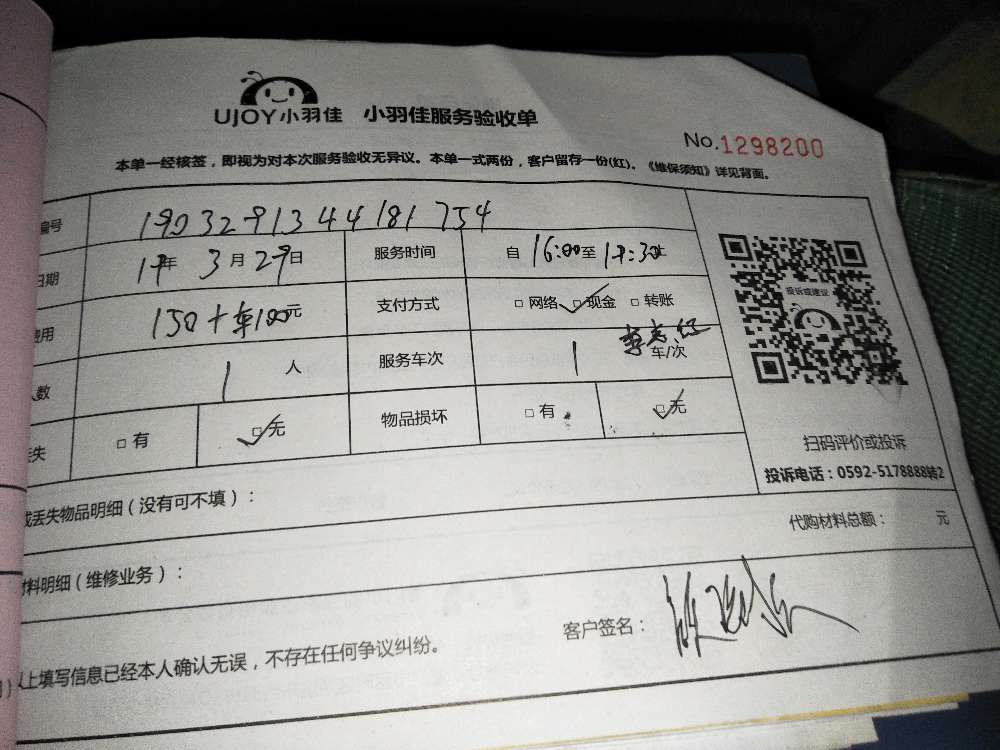 UJOY小羽佳 小羽佳服务验收单
No.1298200
本单一经核签，即视为对本次服务验收无异议。本单一式两份，客户留存一份(红)。《维保须知》详见背面。
编号 1903291344181754
日期 19年 3月29日 服务时间 自16:00至17:30止
费用 150+车100元 支付方式 □网络 □现金 □转账
人数 1 人 服务车次 1 车/次
丢失 □有 □无 物品损坏 □有 □无
投诉或建议
扫码评价或投诉
投诉电话：0592-5178888转2
或丢失物品明细（没有可不填）：
代购材料总额： 元
材料明细（维修业务）：
以上填写信息已经本人确认无误，不存在任何争议纠纷。
客户签名：